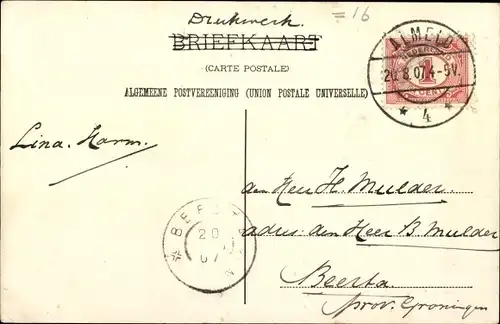 = 16
Drukwerk.
BRIEFKAART
(CARTE POSTALE)
ALGEMEENE POSTVEREENIGING (UNION POSTALE UNIVERSELLE)
ALMELO
20.8.07.4-5V.
4
NEDERLAND
1
CENT
Lina. Harm.
den Heer H. Mulder.
adres: den Heer B. Mulder
Beerta.
prov. Groningen
BEERTA
20
07